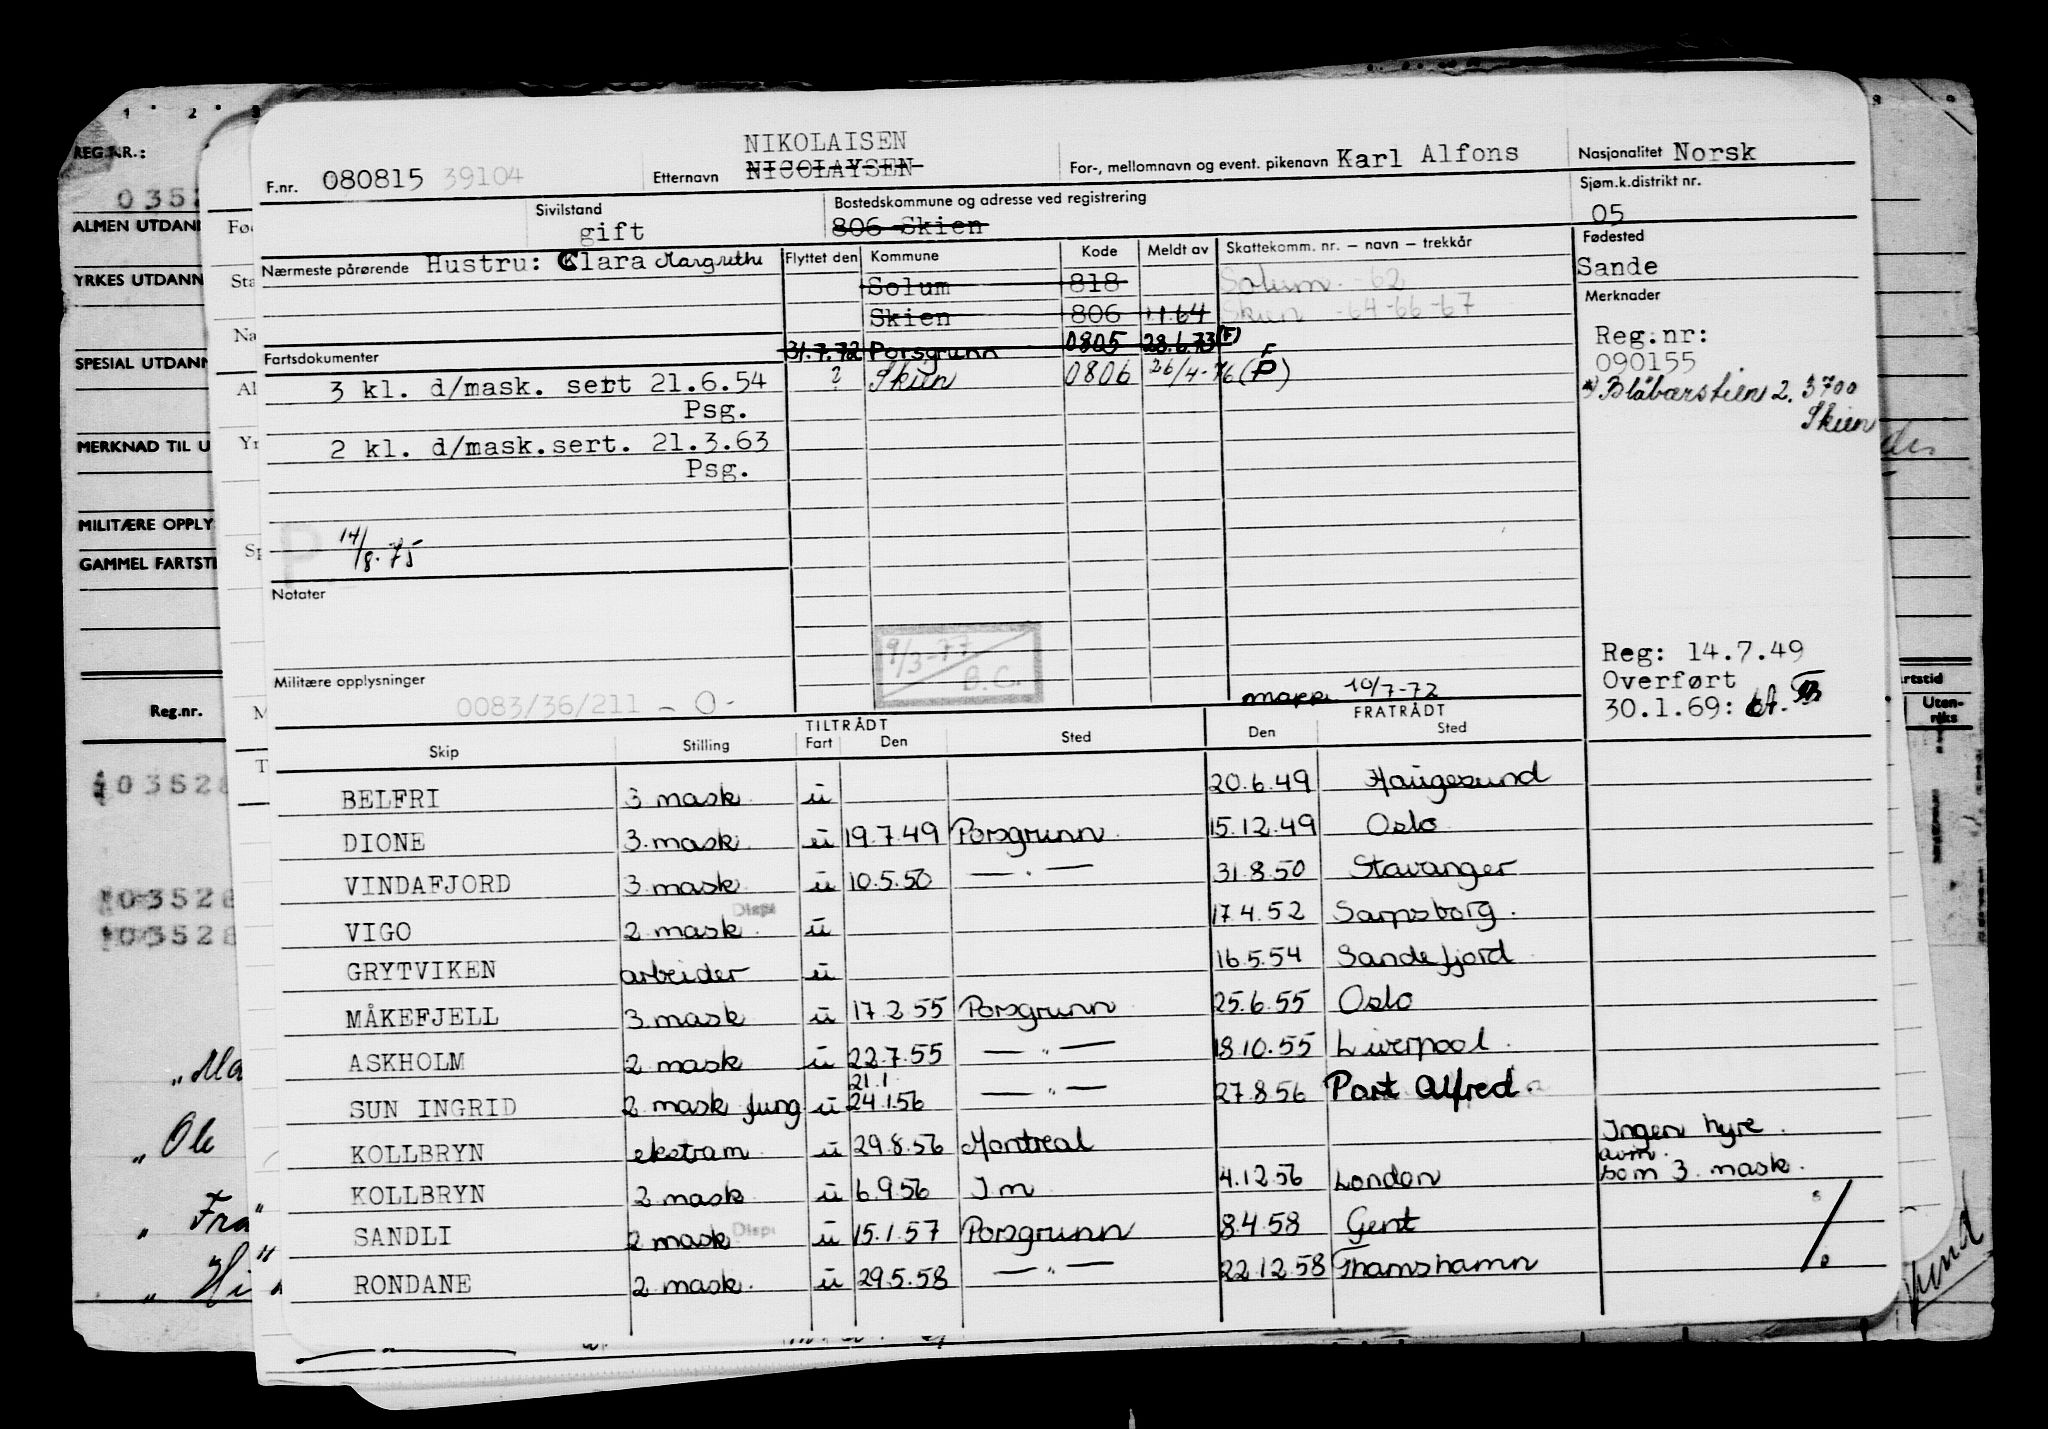 REG.NR.:
0352
ALMEN UTDAN
YRKES UTDANN
SPESIAL UTDANN
MERKNAD TIL U
MILITÆRE OPPLY
GAMMEL FARTSTI
Reg.nr.
03528
03528
03528
F.nr. 080815 39104
NIKOLAISEN
Etternavn NICOLAYSEN
For-, mellomnavn og event. pikenavn Karl Alfons
Nasjonalitet Norsk
Sivilstand
gift
Bostedskommune og adresse ved registrering
806 Skien
Sjøm.k.distrikt nr.
05
Nærmeste pårørende Hustru: Clara Margrethe
Flyttet den Kommune Kode Meldt av Skattekomm. nr. – navn – trekkår
Fødested
Sande
Solum 818 Solum -62
Skien 806 1.1.64 Skien -64-66-67
31.7.72 Porsgrunn 0805 28.6.73 (F)
? Skien 0806 26/4-76 (P) F
Merknader
Reg.nr:
090155
*) Blåbærstien 2, 3700
Skien
Fartsdokumenter
3 kl. d/mask. sert 21.6.54
Psg.
2 kl. d/mask.sert. 21.3.63
Psg.
P
14/8.75
Notater
9/3-77
B.C.
Militære opplysninger
0083/36/211 - 0 -
mapp. 10/7-72
Reg: 14.7.49
Overført
30.1.69:
TILTRÅDT FRATRÅDT
Skip Stilling Fart Den Sted Den Sted
BELFRI 3 mask. u 20.6.49 Haugesund
DIONE 3. mask. u 19.7.49 Porsgrunn 15.12.49 Oslo
VINDAFJORD 3. mask. u 10.5.50 — " — 31.8.50 Stavanger
VIGO 2. mask. Disp u 17.4.52 Sarpsborg.
GRYTVIKEN arbeider u 16.5.54 Sandefjord
MÅKEFJELL 3. mask u 17.2.55 Porsgrunn 25.6.55 Oslo
ASKHOLM 2 mask u 22.7.55 — " — 18.10.55 Liverpool.
SUN INGRID 2 mask fung u 21.1. 24.1.56 — " — 27.8.56 Port Alfred
KOLLBRYN ekstram u 29.8.56 Montreal Ingen hyre.
KOLLBRYN 2 mask u 6.9.56 I m 4.12.56 London avm. som 3. mask.
SANDLI 2 mask Disp u 15.1.57 Porsgrunn 8.4.58 Gent
RONDANE 2 mask. u 29.5.58 — " — 22.12.58 Thamshamn